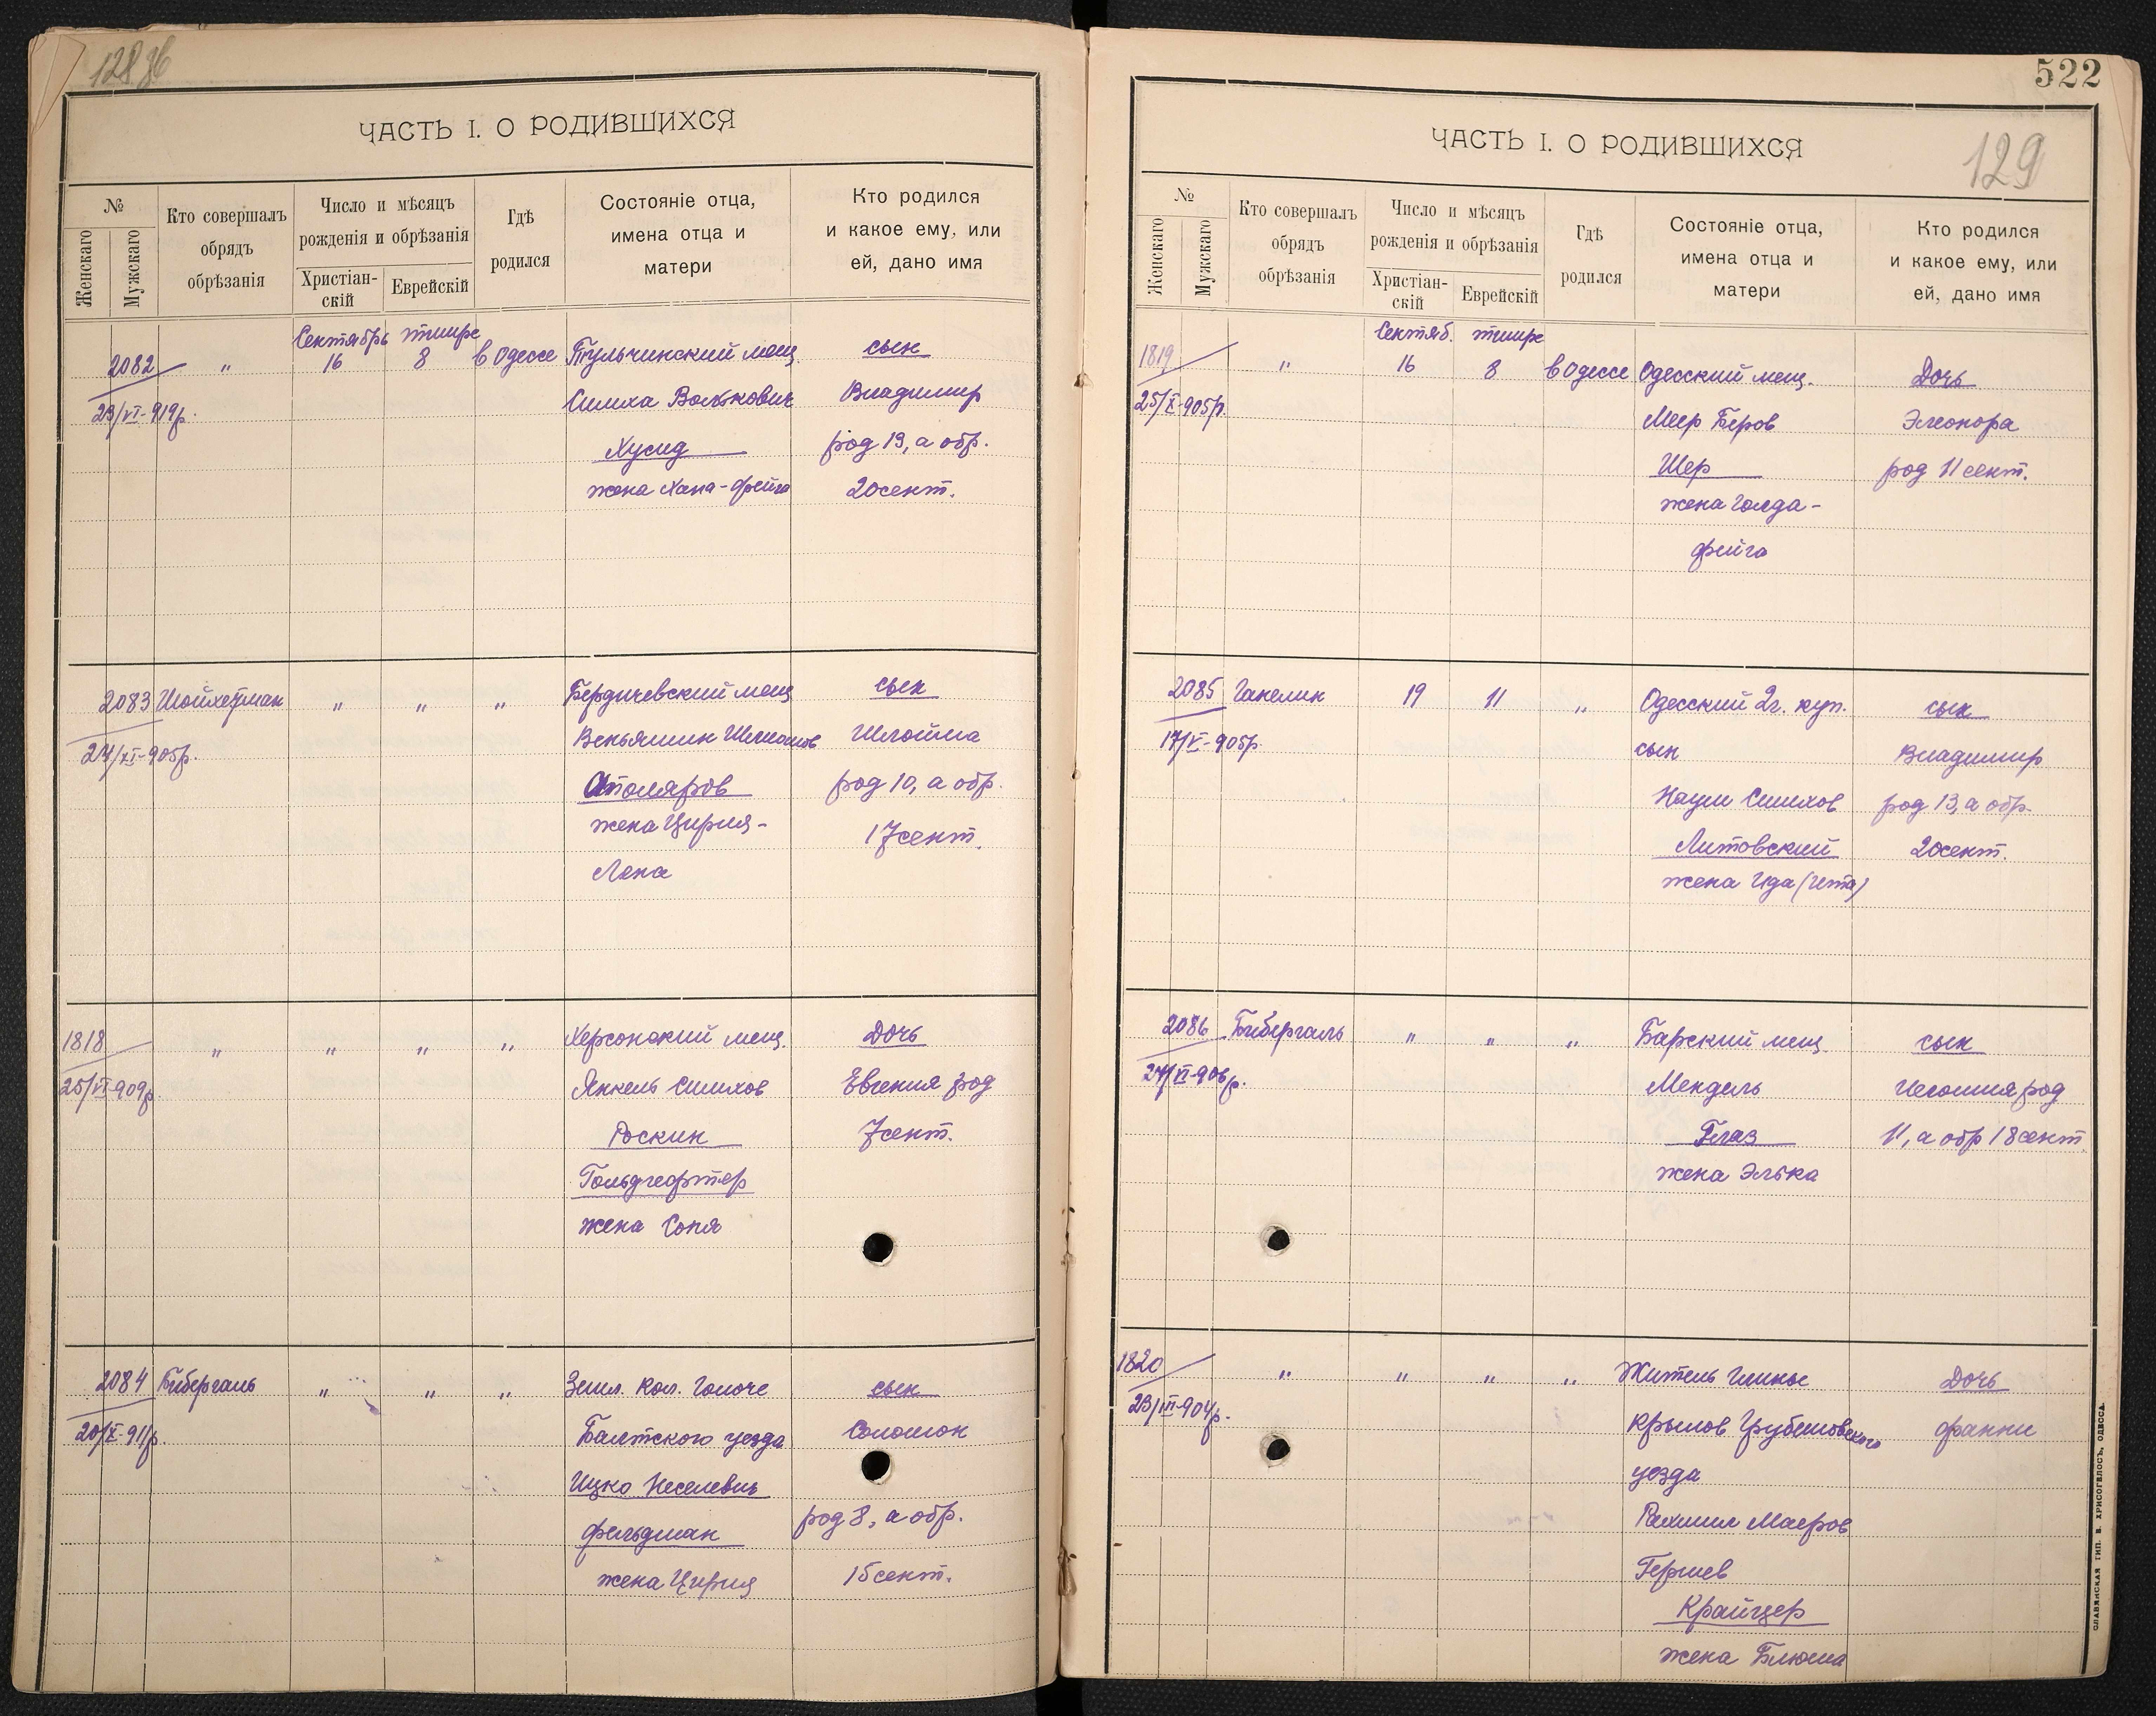 128 об
ЧАСТЬ I. О РОДИВШИХСЯ
№
Женскаго
Мужскаго
Кто совершалъ
обрядъ
обрѣзанія
Число и мѣсяцъ
рожденія и обрѣзанія
Христіан-
скій
Еврейскій
Гдѣ
родился
Состояніе отца,
имена отца и
матери
Кто родился
и какое ему, или
ей, дано имя
Сентябрь тишре
2082 " 16 8 в Одессе Тульчинский мещ. сын
23/VI-919р. Симха Волькович Владимир
Хусид род 13, а обр.
жена Хана-Фейга 20 сент.
2083 Шойхетман " " " Бердичевский мещ сын
24/XI-905р. Веньямин Шлиомов Шлойма
Столяров род 10, а обр.
жена Цирля- 17 сент.
Лена
1818 " " " " Херсонский мещ. Дочь
25/VI-909р. Янкель Симхов Евгения род
Роскин 7 сент.
Гольдгефтер
жена Соня
2084 Бибергаль " " " Земл. Кол. Голоче сын
20/X-911р. Балтского уезда Соломон
Ицко Неселевич
род 8, а обр.
Фельдман
жена Цирля 15 сент.
522
129
ЧАСТЬ I. О РОДИВШИХСЯ
№
Женскаго
Мужскаго
Кто совершалъ
обрядъ
обрѣзанія
Число и мѣсяцъ
рожденія и обрѣзанія
Христіан-
скій
Еврейскій
Гдѣ
родился
Состояніе отца,
имена отца и
матери
Кто родился
и какое ему, или
ей, дано имя
Сентяб. тишре
1819 " 16 8 в Одессе Одесский мещ. Дочь
25/X-905р. Меер Беров Элеонора
Шер род 11 сент.
жена Голда-
Фейга
2085 Ганелин 19 11 " Одесский 2г. куп. сын
17/V-905р. сын Владимир
Наум Симхов род 13, а обр.
Литовский 20 сент.
жена Ида (Ита)
2086 Бибергаль " " " Барский мещ. сын
24/VI-906р. Мендель род
Глаз 11, а обр 18 сент.
жена Элька
1820 " " " " Житель Глинье Дочь
23/III-904р. Крылов Грубешовского Фанни
уезда
Рахмил Маеров
Гершев
Крайзер
жена Блюма
СЛАВЯНСКАЯ ТИП. В. ХРИСОГЕЛОСЪ, ОДЕССА.